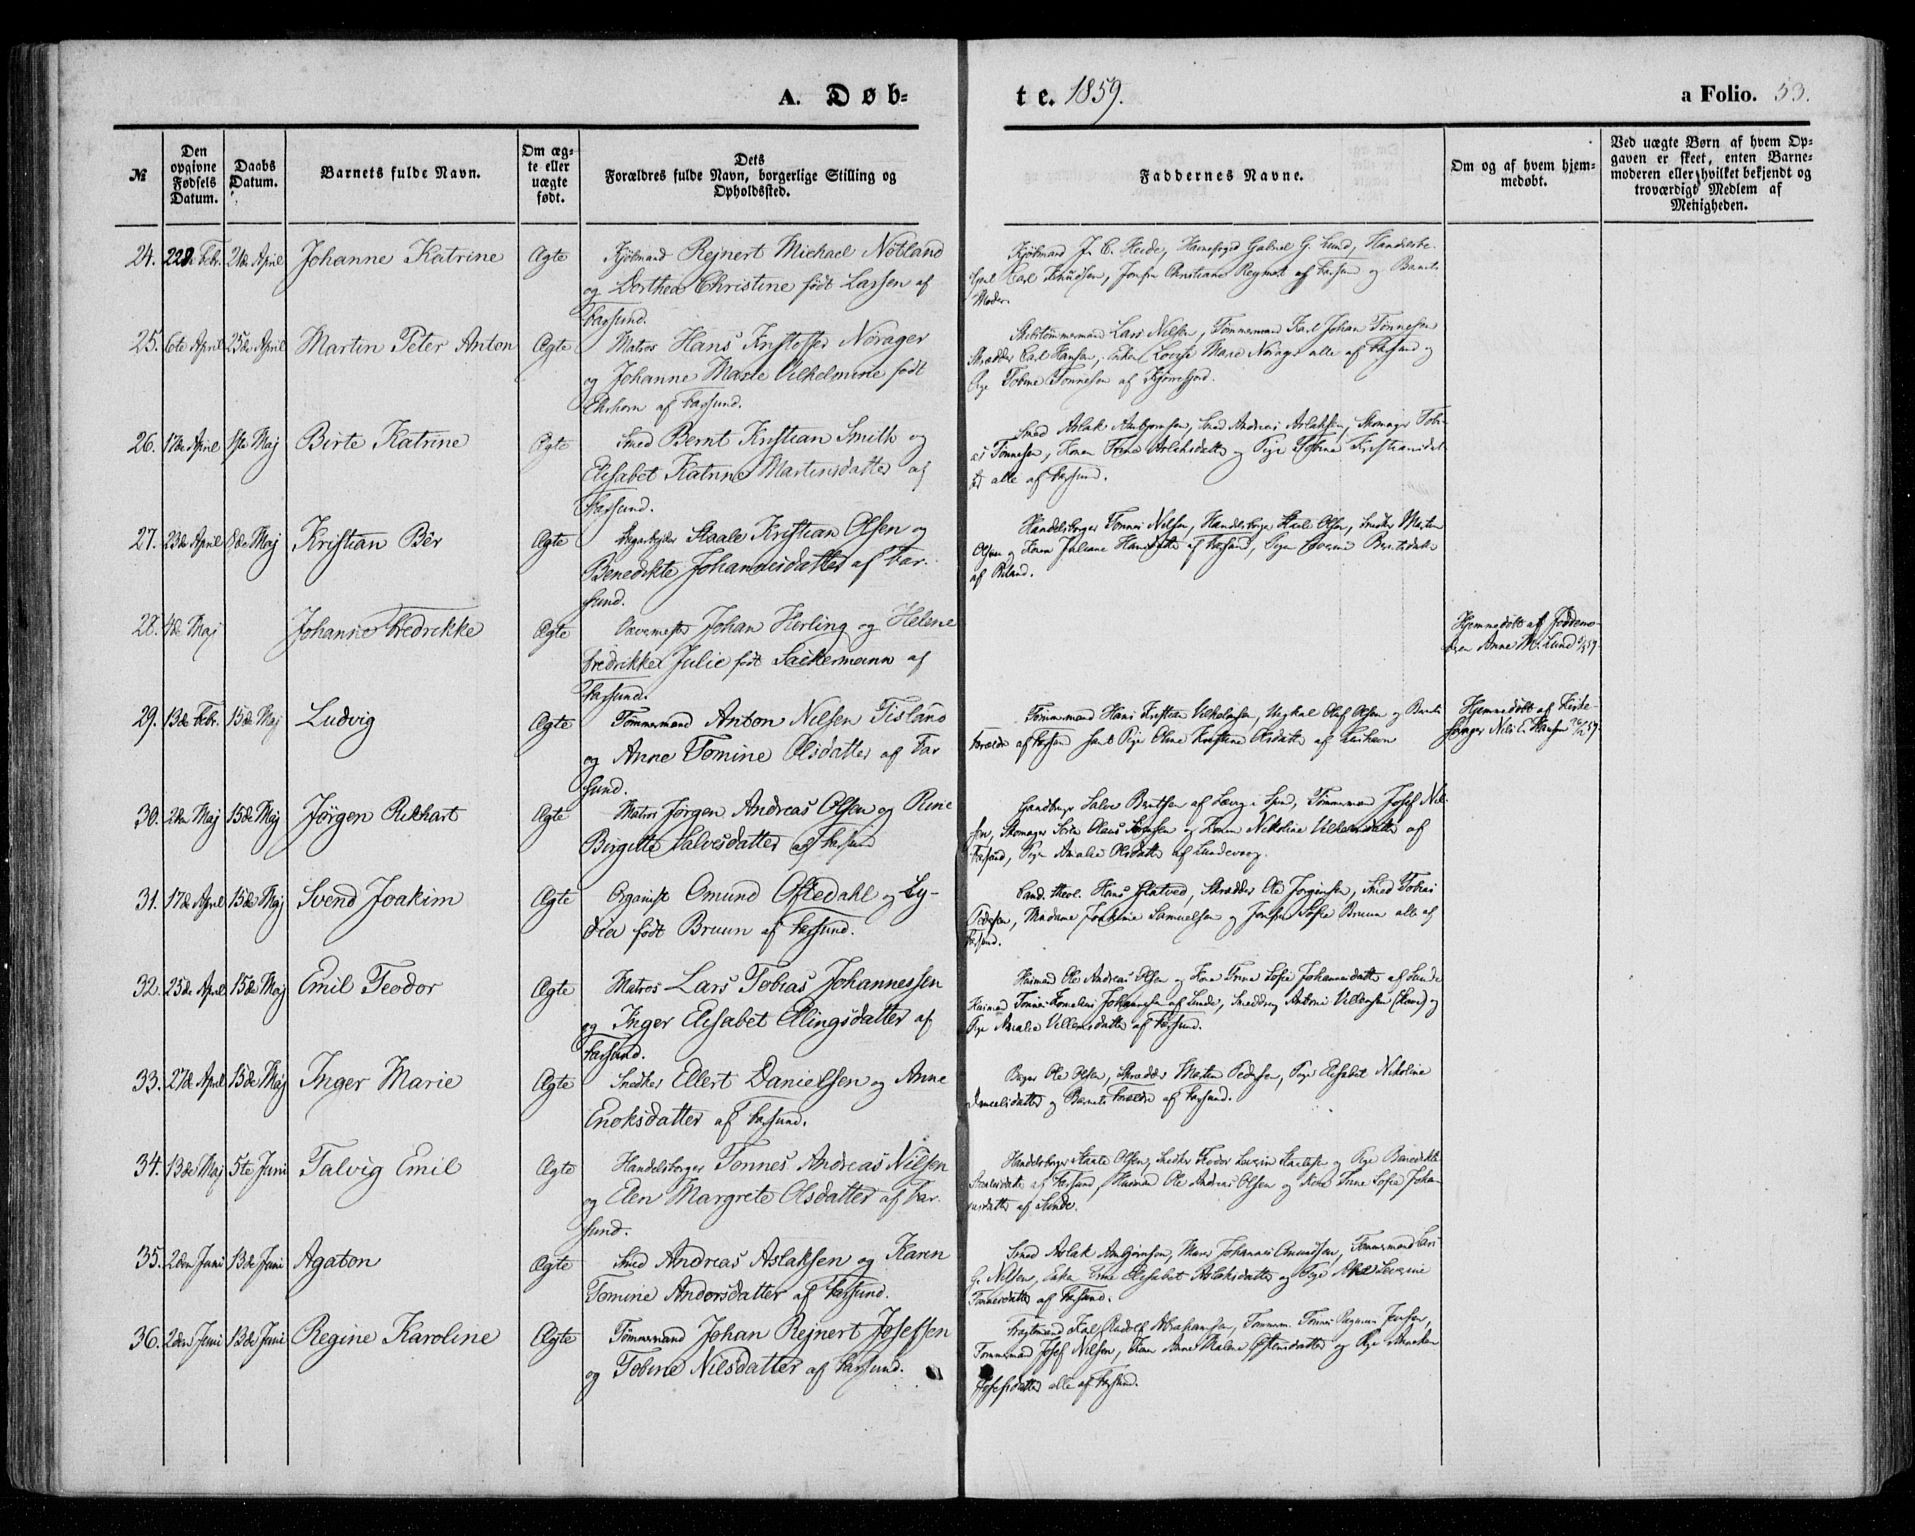 A. Døb-
te. 1859.
a Folio. 53.
№
Den opgivne Fødsels Datum.
Daabs Datum.
Barnets fulde Navn.
Om ægte eller uægte født.
Dets Forældres fulde Navn, borgerlige Stilling og Opholdssted.
Faddernes Navne.
Om og af hvem hjemmedøbt.
Ved uægte Børn af hvem Opgaven er skeet, enten Barnemoderen eller hvilket bekjendt og troværdigt Medlem af Menigheden.
24. 22de Febr. 21de April Johanne Katrine Ægte Kjøbmand Rejnert Michael Nøtland
og Dorthea Christine født Lassen af
Farsund.
Kjøbmand J. C. Heide, Havnefoged Gabriel G. Lund, Handelsbe-
Carl Knudsen, Jomfru Christiane Reymert af Farsund og Barnets
Moder.
25. 6te April 25de April Martin Peter Anton Ægte Matros Hans Kristoffer Nørager
og Johanne Marie Vilhelmine født
af Farsund.
Skibstømmermand Lars Nilsen, Tømmermand Karl Johan Tønnesen
Skrædder Carl Hansen, Enken Lovise Marie Nørager alle af Farsund og
Pige Tobine Tønnesen af
26. 17de April 1ste Maj Birte Katrine Ægte Smed Bernt Kristian Smith og
Elisabet Katrine Martinsdatter af
Farsund.
Smed Aslak Anbjørnsen, Smed Andreas Aslaksen, Skomager Tobi-
as Tønnesen, Konen Trine Aslaksdatter og Pige Kristiansdat-
ter alle af Farsund.
27. 23de April 8de Maj Kristian Bér Ægte Staale Kristian Olsen og
Benedikte Johannesdatter af Far-
sund.
Handelsborger Tønnes Nilsen, Handelsborger Staale Olsen, Snedker Morten
Olsen og Konen Juliane Hansdatter af Farsund, Pige Severine Berntsdatter
af
28. 4de Maj Johanne Fredrikke Ægte Johan Herling og Helene
Fredrikke Julie født Sackermann af
Farsund.
Hjemmedøbt af Jordemo-
deren Anne M. Lund
29. 13de Febr. 15de Maj Ludvig Ægte Tømmermand Anton Nilsen Tisland
og Anne Tomine Olsdatter af Far
sund.
Tømmermand Hans Kristian Vilhelmsen, Ungkal Oluf Olsen og Barnets
Forældre af Farsund samt Pige Oline Kristine Olsdatter af
Hjemmedøbt af Kirke-
sanger Nils E. Hansen
30. 2den Maj 15de Maj Jørgen Rikhart Ægte Matros Jørgen Andreas Olsen og Rine
Birgitte Salvesdatter af Farsund
Salve Berntsen af Tømmermand Josef Nil-
sen, Skomager Søren Olaus Sørensen og Konen Nikoline Villumsdatter af
Farsund, Pige Amalie Olsdatter af Lundevaag.
31. 17de April 15de Maj Svend Joakim Ægte Organist Omund Oftedahl og Ly-
dia født Bruun af Farsund.
Cand. theol. Hans Skrædder Ole Jørgensen, Smed Tobias
Pedersen, Madame Joakime Samuelsen og Jomfru Sofie Bruun alle af
Farsund.
32. 25de April 15de Maj Emil Teodor Ægte Matros Lars Tobias Johannessen
og Inger Elisabet Ellingsdatter af
Farsund.
Husmand Ole Andreas Olsen og Kone Trine Sofie Johannesdatter af Lunde
Husmand Tønnes Kornelius Johannesen af Lunde, Antoni Villumsen og
Pige Amalie Villumsdatter af Farsund.
33. 27de April 15de Maj Inger Marie Ægte Snedker Ellert Danielsen og Anne
Enoksdatter af Farsund.
Bager Ole Olsen, Skrædder Morten Pedersen, Pige Elisabet Nikoline
Danielsdatter og Barnets Forældre af Farsund.
34. 13de Maj 5te Juni Talvig Emil Ægte Handelsborger Tønnes Andreas Nilsen
og Elen Margrete Olsdatter af Far-
sund.
Handelsborger Staale Olsen, Snedker Teodor Severin Staalesen og Pige Benedikte
Staalesdatter af Farsund, Husmand Ole Andreas Olsen og Kone Trine Sofie Johan-
nesdatter af Lunde.
35. 2den Juni 13de Juni Agaton Ægte Smed Andreas Aslaksen og Karen
Tomine Andorsdatter af Farsund.
Smed Aslak Anbjørnsen, Johannes Omundsen, Tømmermand Lars
G. Nilsen, Enken Trine Elisabet Aslaksdatter og Pige Severine
Tønnesdatter af Farsund.
36. 2den Juni 13de Juni Regine Karoline Ægte Tømmermand Johan Rejnert Josefsen
og Tobine Nilsdatter af Farsund.
Karl Rudolf Abrahamsen, Tømmerm. Tønnes Jensen,
Tømmermand Josef Nilsen, Kone Anne Malene og Pige Anneken
Josefsdatter alle af Farsund.